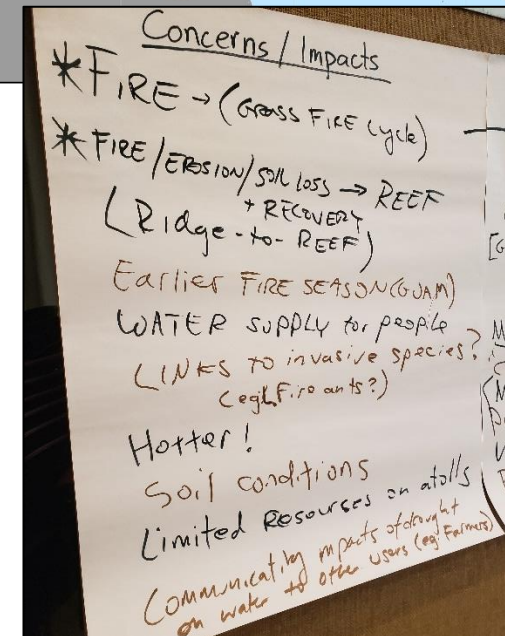 Concerns/Impacts
*FIRE → (Grass FIRE Cycle)
*FIRE/EROSION/SOIL LOSS → REEF
+ RECOVERY
(Ridge-to-REEF)
Earlier FIRE SEASON (GUAM)
WATER SUPPLY for people
LINKS to invasive species?
(eg. Fire ants?)
Hotter!
Soil conditions
Limited Resourses on atolls
Communicating impacts of drought
on water to other users (eg. Farmers)